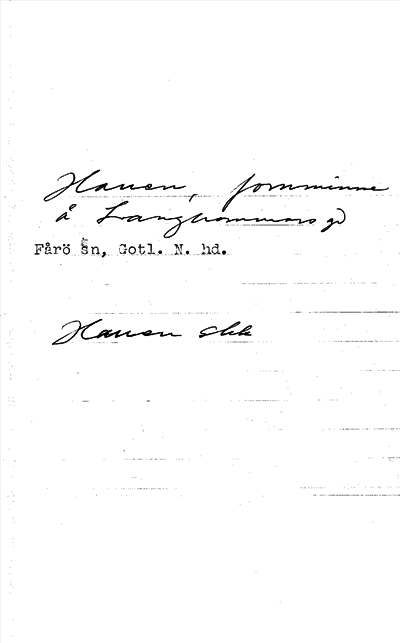 Hauen, fornminne
å Langhammars gd
Fårö sn, Gotl. N. hd.
Hauen ekk